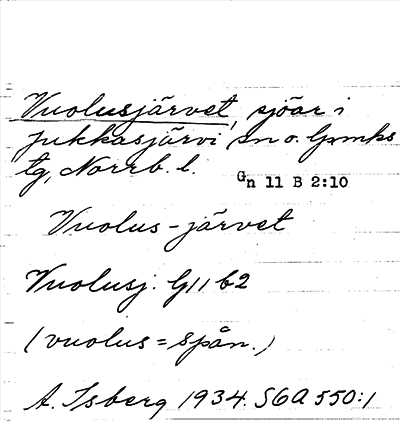 Vuolusjärvet, sjöar i
Jukkasjärvi sn o. Grmks
tg, Norrb. l.
Gn 11 B 2:10
Vuolus-järvet
Vuolusj. G11 b2
(vuolus = spån.)
A. Isberg 1934. S6A 550:1